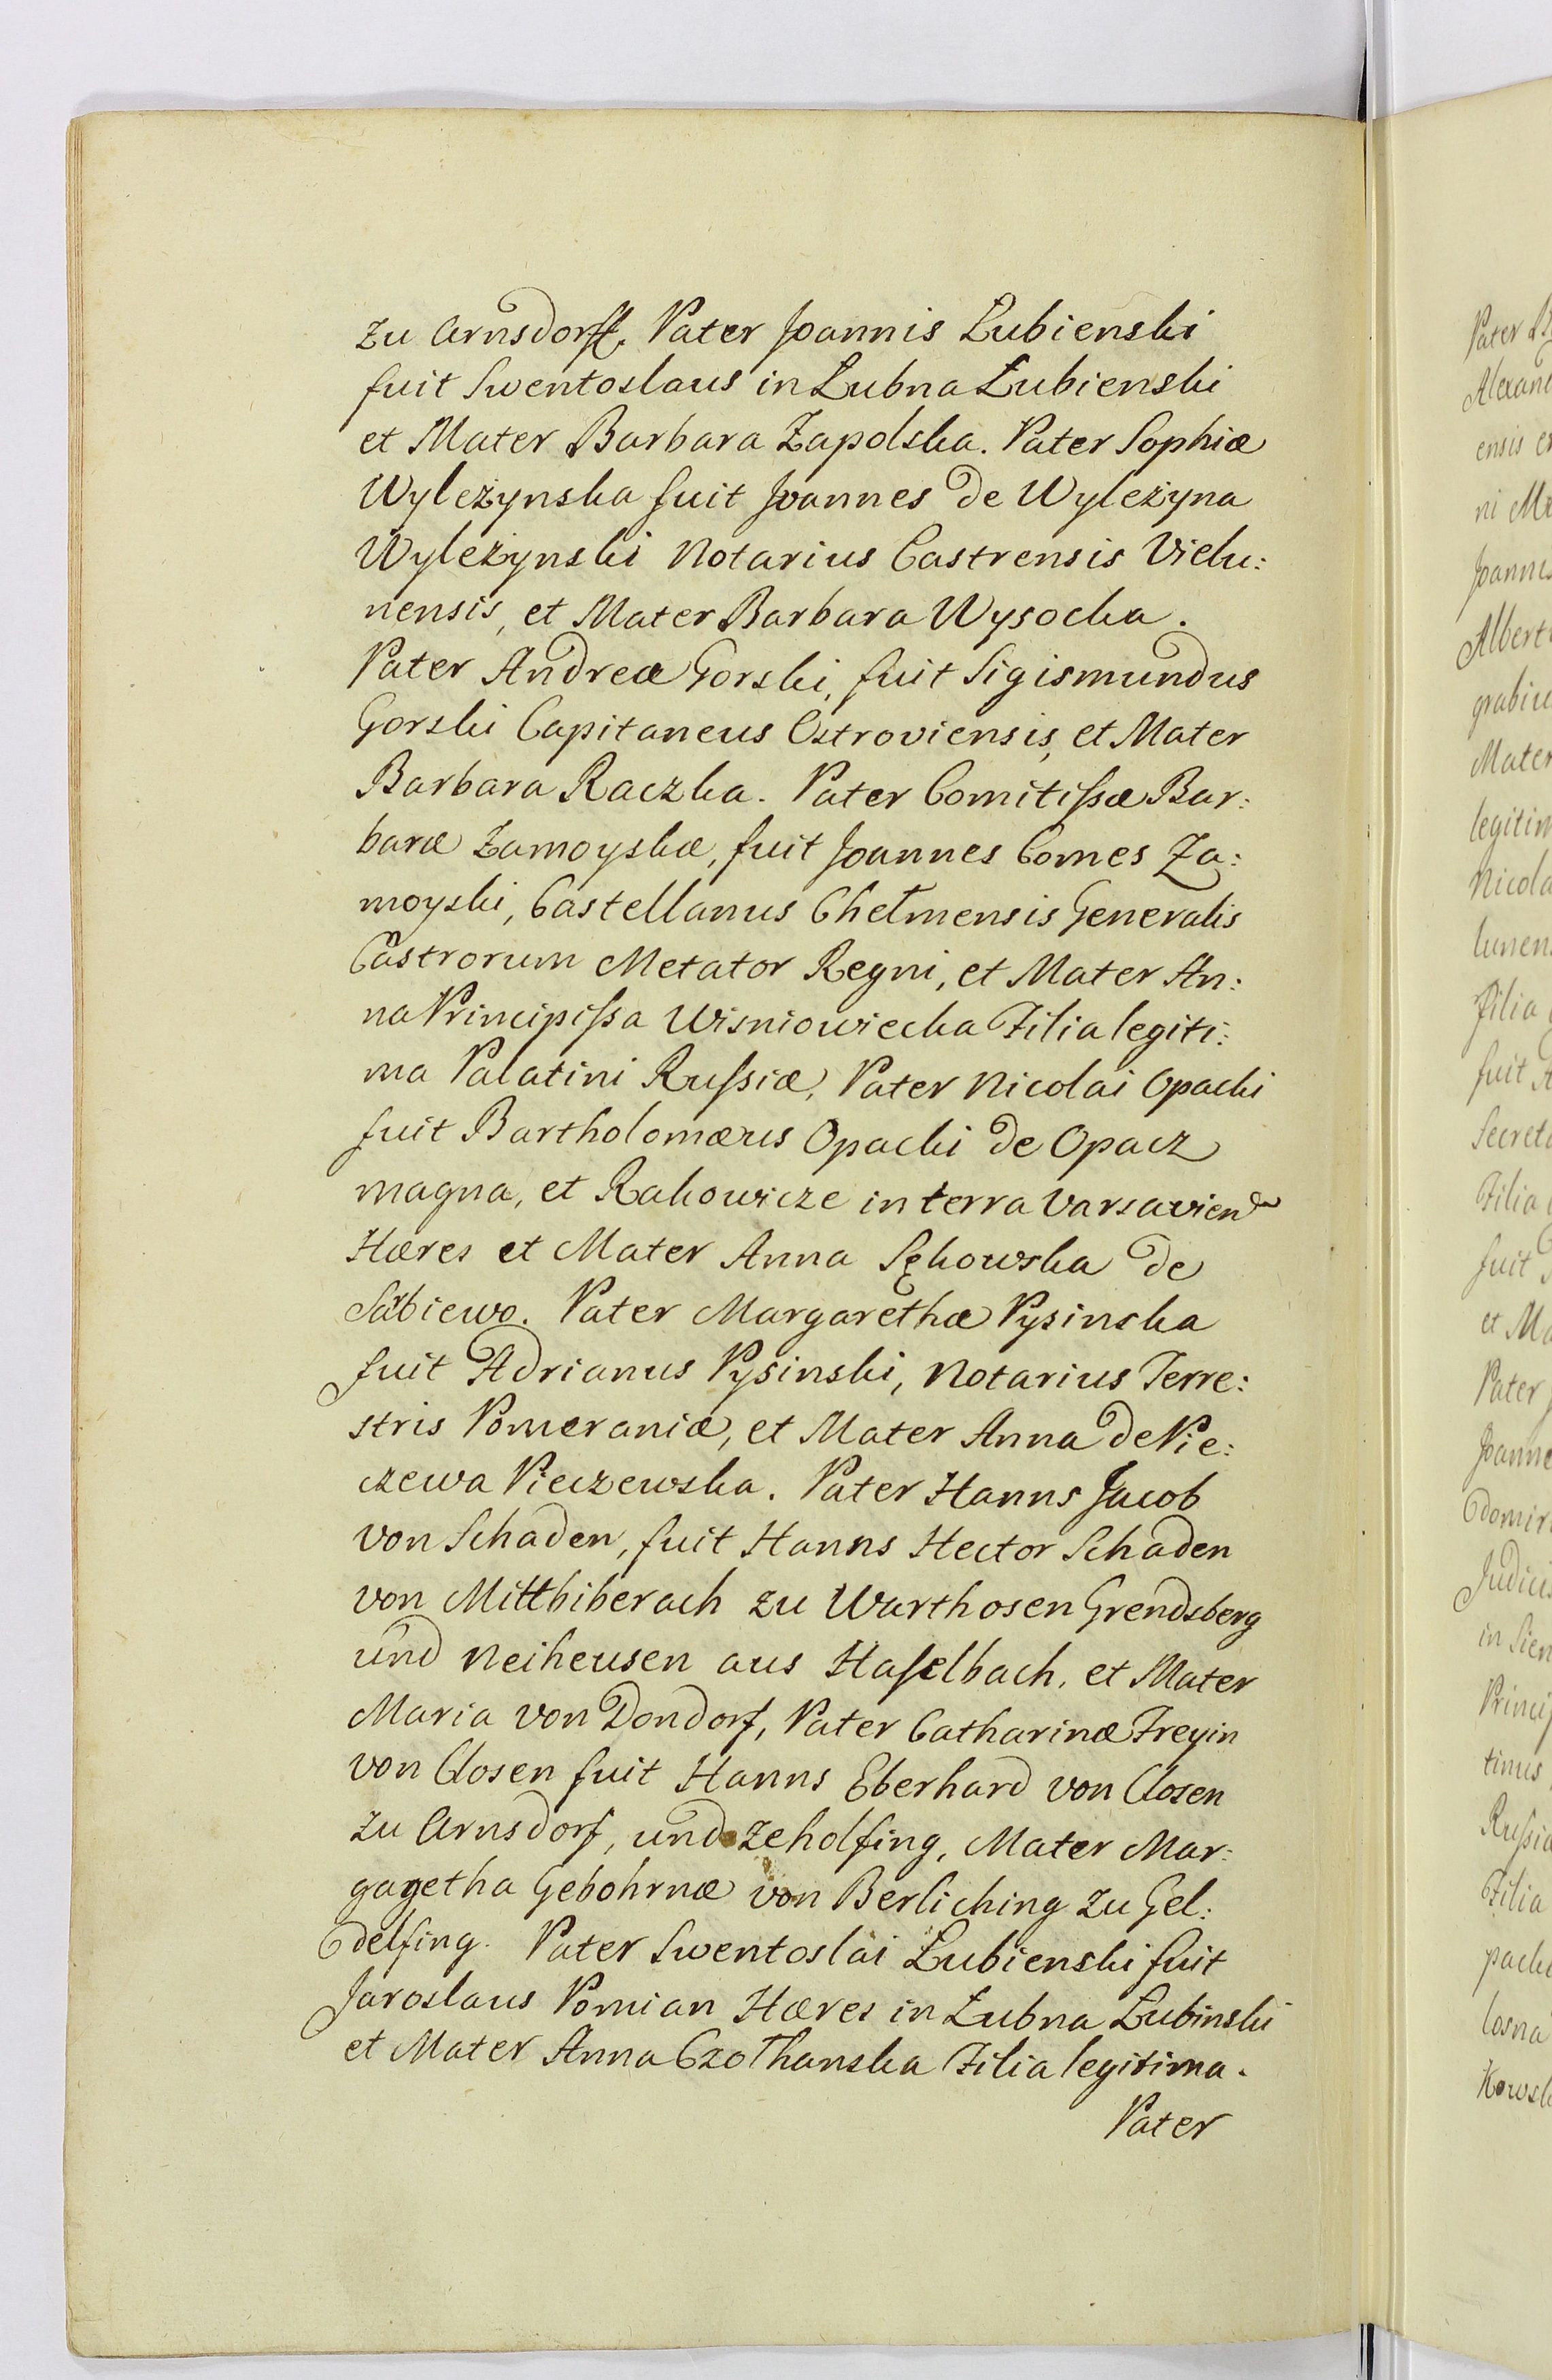 zu Arnsdorff. Pater Joannis Łubienski
fuit Swentoslaus in Łubna Łubienski
et Mater Barbara Zapolska. Pater Sophiæ
Wyleżynska fuit Joannes de Wyleżyna
Wyleżynski Notarius Castrensis Vielu:
nensis, et Mater Barbara Wysocka.
Pater Andreæ Gorski, fuit Sigismundus
Gorski Capitaneus Ostroviensis, et Mater
Barbara Raczka. Pater Comitissæ Bar:
baræ Zamoyskæ, fuit Joannes Comes Za:
moyski, Castellanus Chełmensis Generalis
Castrorum Metator Regni, et Mater An:
na Principissa Wisniowiecka Filia legiti:
ma Palatini Russiæ, Pater Nicolai Opacki
fuit Bartholomæus Opacki de Opacz
magna, et Rakowicze in terra Varsavien
Hæres et Mater Anna Sękowska de
Sabiewo. Pater Margarethæ Pysinska
fuit Adrianus Pysinski, Notarius Terre:
stris Pomeraniæ, et Mater Anna de Pie:
czewa Pieczewska. Pater Hanns Jacob
von Schaden, fuit Hanns Hector Schaden
von Mittbiberach zu Warthosen Grendsberg
und Neiheusen aus Haselbach, et Mater
Maria von Dondorf, Pater Catharinæ Freyin
von Closen fuit Hanns Eberhard von Closen
zu Arnsdorf, und Zeholfing, Mater Mar:
gagetha Gebohrnæ von Berliching zu Gel:
delfing. Pater Swentoslai Łubienski fuit
Jaroslaus Pomian Hæres in Łubna Łubinski
et Mater Anna Czołhanska Filia legitima.
Pater
Pater
ensis
Joannes
Mater
Nicola
Filia
fuit
Filia
fuit
Pater
Filia